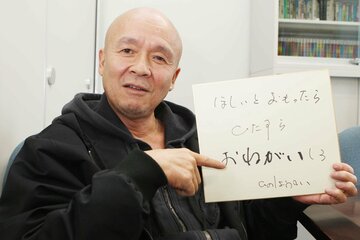 ほしいとおもったら
ひたすら
おねがいしろ